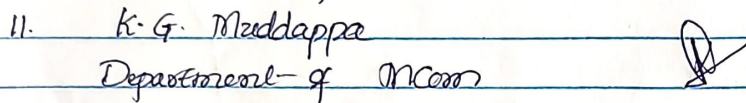 11. K. G. Muddappa
Department of MCom